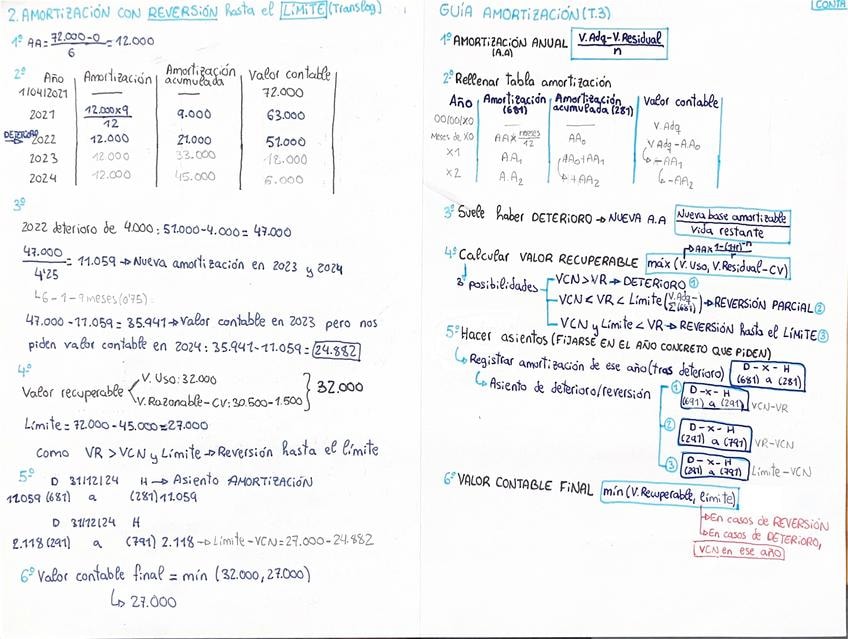 2. AMORTIZACIÓN CON REVERSIÓN hasta el LÍMITE (Translog)
1º AA = 72.000-0 / 6 = 12.000
2º Año Amortización Amortización acumulada Valor contable
1/04/2021 — — 72.000
2021 12.000x9 / 12 9.000 63.000
DETERIORO 2022 12.000 21.000 51.000
2023 12.000 33.000 18.000
2024 12.000 45.000 6.000
3º
2022 deterioro de 4.000: 51.000-4.000 = 47.000
47.000 / 4'25 = 11.059 → Nueva amortización en 2023 y 2024
↳ 6-1-9meses (0'75)
47.000-11.059 = 35.941 → Valor contable en 2023 pero nos
piden valor contable en 2024: 35.941-11.059 = 24.882
4º
Valor recuperable < V. Uso: 32.000
V. Razonable-CV: 30.500-1.500 } 32.000
Límite = 72.000-45.000 = 27.000
Como VR > VCN y Límite → Reversión hasta el límite
5º D 31/12/24 H → Asiento AMORTIZACIÓN
11.059 (681) a (281) 11.059
D 31/12/24 H
2.118 (291) a (791) 2.118 → Límite-VCN = 27.000-24.882
6º Valor contable final = mín (32.000, 27.000)
↳ 27.000
CONTA
GUÍA AMORTIZACIÓN (T.3)
1º AMORTIZACIÓN ANUAL (A.A) V.Adq-V.Residual / n
2º Rellenar tabla amortización
Año Amortización (681) Amortización acumulada (281) Valor contable
00/00/X0 — — V.Adq
Meses de X0 AA x meses / 12 AA₀ V.Adq-A.A₀
X1 A.A₁ AA₀+AA₁ ↳ -AA₁
X2 A.A₂ ↳ +AA₂ ↳ -AA₂
3º Suele haber DETERIORO → NUEVA A.A Nueva base amortizable / Vida restante
→ AA x 1-(1+r)⁻ⁿ / r
4º Calcular VALOR RECUPERABLE máx (V. Uso, V.Residual-CV)
3 posibilidades VCN > VR → DETERIORO ①
VCN < VR < Límite (V.Adq- Σ(681)) → REVERSIÓN PARCIAL ②
VCN y Límite < VR → REVERSIÓN hasta el LÍMITE ③
5º Hacer asientos (FIJARSE EN EL AÑO CONCRETO QUE PIDEN)
↳ Registrar amortización de ese año (tras deterioro) D-x-H (681) a (281)
↳ Asiento de deterioro/reversión ① D-x-H (691) a (291) VCN-VR
② D-x-H (291) a (791) VR-VCN
③ D-x-H (291) a (791) Límite-VCN
6º VALOR CONTABLE FINAL mín (V.Recuperable, límite)
→ En casos de REVERSIÓN
→ En casos de DETERIORO,
VCN en ese año